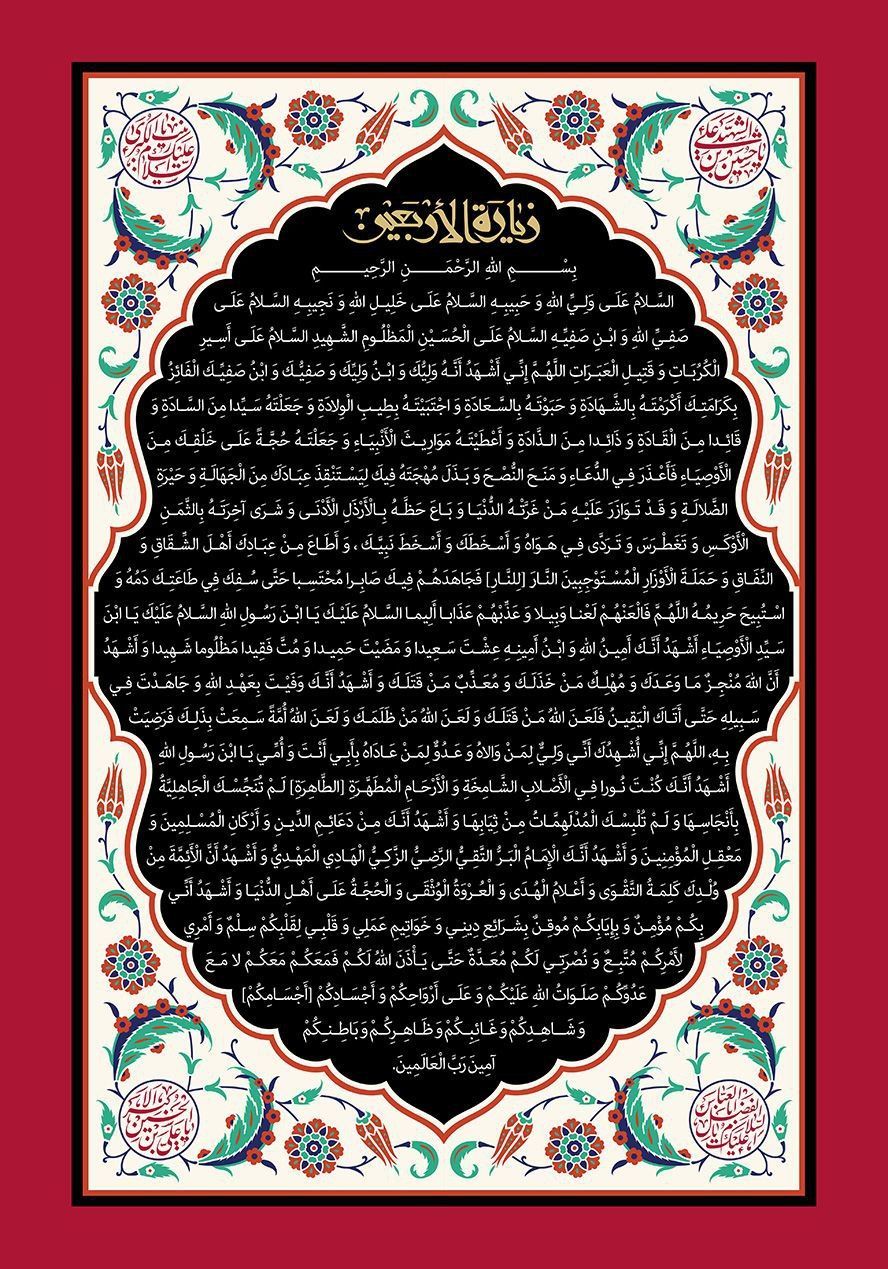 زيارة الأربعين
بِسْمِ اللهِ الرَّحْمَنِ الرَّحِيمِ
السَّلامُ عَلَى وَلِيِّ اللهِ وَ حَبِيبِهِ السَّلامُ عَلَى خَلِيلِ اللهِ وَ نَجِيبِهِ السَّلامُ عَلَى
صَفِيِّ اللهِ وَ ابْنِ صَفِيِّهِ السَّلامُ عَلَى الْحُسَيْنِ الْمَظْلُومِ الشَّهِيدِ السَّلامُ عَلَى أَسِيرِ
الْكُرُبَاتِ وَ قَتِيلِ الْعَبَرَاتِ اللَّهُمَّ إِنِّي أَشْهَدُ أَنَّهُ وَلِيُّكَ وَ ابْنُ وَلِيِّكَ وَ صَفِيُّكَ وَ ابْنُ صَفِيِّكَ الْفَائِزُ
بِكَرَامَتِكَ أَكْرَمْتَهُ بِالشَّهَادَةِ وَ حَبَوْتَهُ بِالسَّعَادَةِ وَ اجْتَبَيْتَهُ بِطِيبِ الْوِلادَةِ وَ جَعَلْتَهُ سَيِّدا مِنَ السَّادَةِ وَ
قَائِدا مِنَ الْقَادَةِ وَ ذَائِدا مِنَ الذَّادَةِ وَ أَعْطَيْتَهُ مَوَارِيثَ الْأَنْبِيَاءِ وَ جَعَلْتَهُ حُجَّةً عَلَى خَلْقِكَ مِنَ
الْأَوْصِيَاءِ فَأَعْذَرَ فِي الدُّعَاءِ وَ مَنَحَ النُّصْحَ وَ بَذَلَ مُهْجَتَهُ فِيكَ لِيَسْتَنْقِذَ عِبَادَكَ مِنَ الْجَهَالَةِ وَ حَيْرَةِ
الضَّلالَةِ وَ قَدْ تَوَازَرَ عَلَيْهِ مَنْ غَرَّتْهُ الدُّنْيَا وَ بَاعَ حَظَّهُ بِالْأَرْذَلِ الْأَدْنَى وَ شَرَى آخِرَتَهُ بِالثَّمَنِ
الْأَوْكَسِ وَ تَغَطْرَسَ وَ تَرَدَّى فِي هَوَاهُ وَ أَسْخَطَكَ وَ أَسْخَطَ نَبِيَّكَ ، وَ أَطَاعَ مِنْ عِبَادِكَ أَهْلَ الشِّقَاقِ وَ
النِّفَاقِ وَ حَمَلَةَ الْأَوْزَارِ الْمُسْتَوْجِبِينَ النَّارَ [لِلنَّارِ] فَجَاهَدَهُمْ فِيكَ صَابِرا مُحْتَسِبا حَتَّى سُفِكَ فِي طَاعَتِكَ دَمُهُ وَ
اسْتُبِيحَ حَرِيمُهُ اللَّهُمَّ فَالْعَنْهُمْ لَعْنا وَبِيلا وَ عَذِّبْهُمْ عَذَابا أَلِيما السَّلامُ عَلَيْكَ يَا ابْنَ رَسُولِ اللهِ السَّلامُ عَلَيْكَ يَا ابْنَ
سَيِّدِ الْأَوْصِيَاءِ أَشْهَدُ أَنَّكَ أَمِينُ اللهِ وَ ابْنُ أَمِينِهِ عِشْتَ سَعِيدا وَ مَضَيْتَ حَمِيدا وَ مُتَّ فَقِيدا مَظْلُوما شَهِيدا وَ أَشْهَدُ
أَنَّ اللهَ مُنْجِزٌ مَا وَعَدَكَ وَ مُهْلِكٌ مَنْ خَذَلَكَ وَ مُعَذِّبٌ مَنْ قَتَلَكَ وَ أَشْهَدُ أَنَّكَ وَفَيْتَ بِعَهْدِ اللهِ وَ جَاهَدْتَ فِي
سَبِيلِهِ حَتَّى أَتَاكَ الْيَقِينُ فَلَعَنَ اللهُ مَنْ قَتَلَكَ وَ لَعَنَ اللهُ مَنْ ظَلَمَكَ وَ لَعَنَ اللهُ أُمَّةً سَمِعَتْ بِذَلِكَ فَرَضِيَتْ
بِهِ، اللَّهُمَّ إِنِّي أُشْهِدُكَ أَنِّي وَلِيٌّ لِمَنْ وَالاهُ وَ عَدُوٌّ لِمَنْ عَادَاهُ بِأَبِي أَنْتَ وَ أُمِّي يَا ابْنَ رَسُولِ اللهِ
أَشْهَدُ أَنَّكَ كُنْتَ نُورا فِي الْأَصْلابِ الشَّامِخَةِ وَ الْأَرْحَامِ الْمُطَهَّرَةِ [الطَّاهِرَةِ] لَمْ تُنَجِّسْكَ الْجَاهِلِيَّةُ
بِأَنْجَاسِهَا وَ لَمْ تُلْبِسْكَ الْمُدْلَهِمَّاتُ مِنْ ثِيَابِهَا وَ أَشْهَدُ أَنَّكَ مِنْ دَعَائِمِ الدِّينِ وَ أَرْكَانِ الْمُسْلِمِينَ وَ
مَعْقِلِ الْمُؤْمِنِينَ وَ أَشْهَدُ أَنَّكَ الْإِمَامُ الْبَرُّ التَّقِيُّ الرَّضِيُّ الزَّكِيُّ الْهَادِي الْمَهْدِيُّ وَ أَشْهَدُ أَنَّ الْأَئِمَّةَ مِنْ
وُلْدِكَ كَلِمَةُ التَّقْوَى وَ أَعْلامُ الْهُدَى وَ الْعُرْوَةُ الْوُثْقَى وَ الْحُجَّةُ عَلَى أَهْلِ الدُّنْيَا وَ أَشْهَدُ أَنِّي
بِكُمْ مُؤْمِنٌ وَ بِإِيَابِكُمْ مُوقِنٌ بِشَرَائِعِ دِينِي وَ خَوَاتِيمِ عَمَلِي وَ قَلْبِي لِقَلْبِكُمْ سِلْمٌ وَ أَمْرِي
لِأَمْرِكُمْ مُتَّبِعٌ وَ نُصْرَتِي لَكُمْ مُعَدَّةٌ حَتَّى يَأْذَنَ اللهُ لَكُمْ فَمَعَكُمْ مَعَكُمْ لا مَعَ
عَدُوِّكُمْ صَلَوَاتُ اللهِ عَلَيْكُمْ وَ عَلَى أَرْوَاحِكُمْ وَ أَجْسَادِكُمْ [أَجْسَامِكُمْ]
وَ شَاهِدِكُمْ وَ غَائِبِكُمْ وَ ظَاهِرِكُمْ وَ بَاطِنِكُمْ
آمِينَ رَبَّ الْعَالَمِينَ.